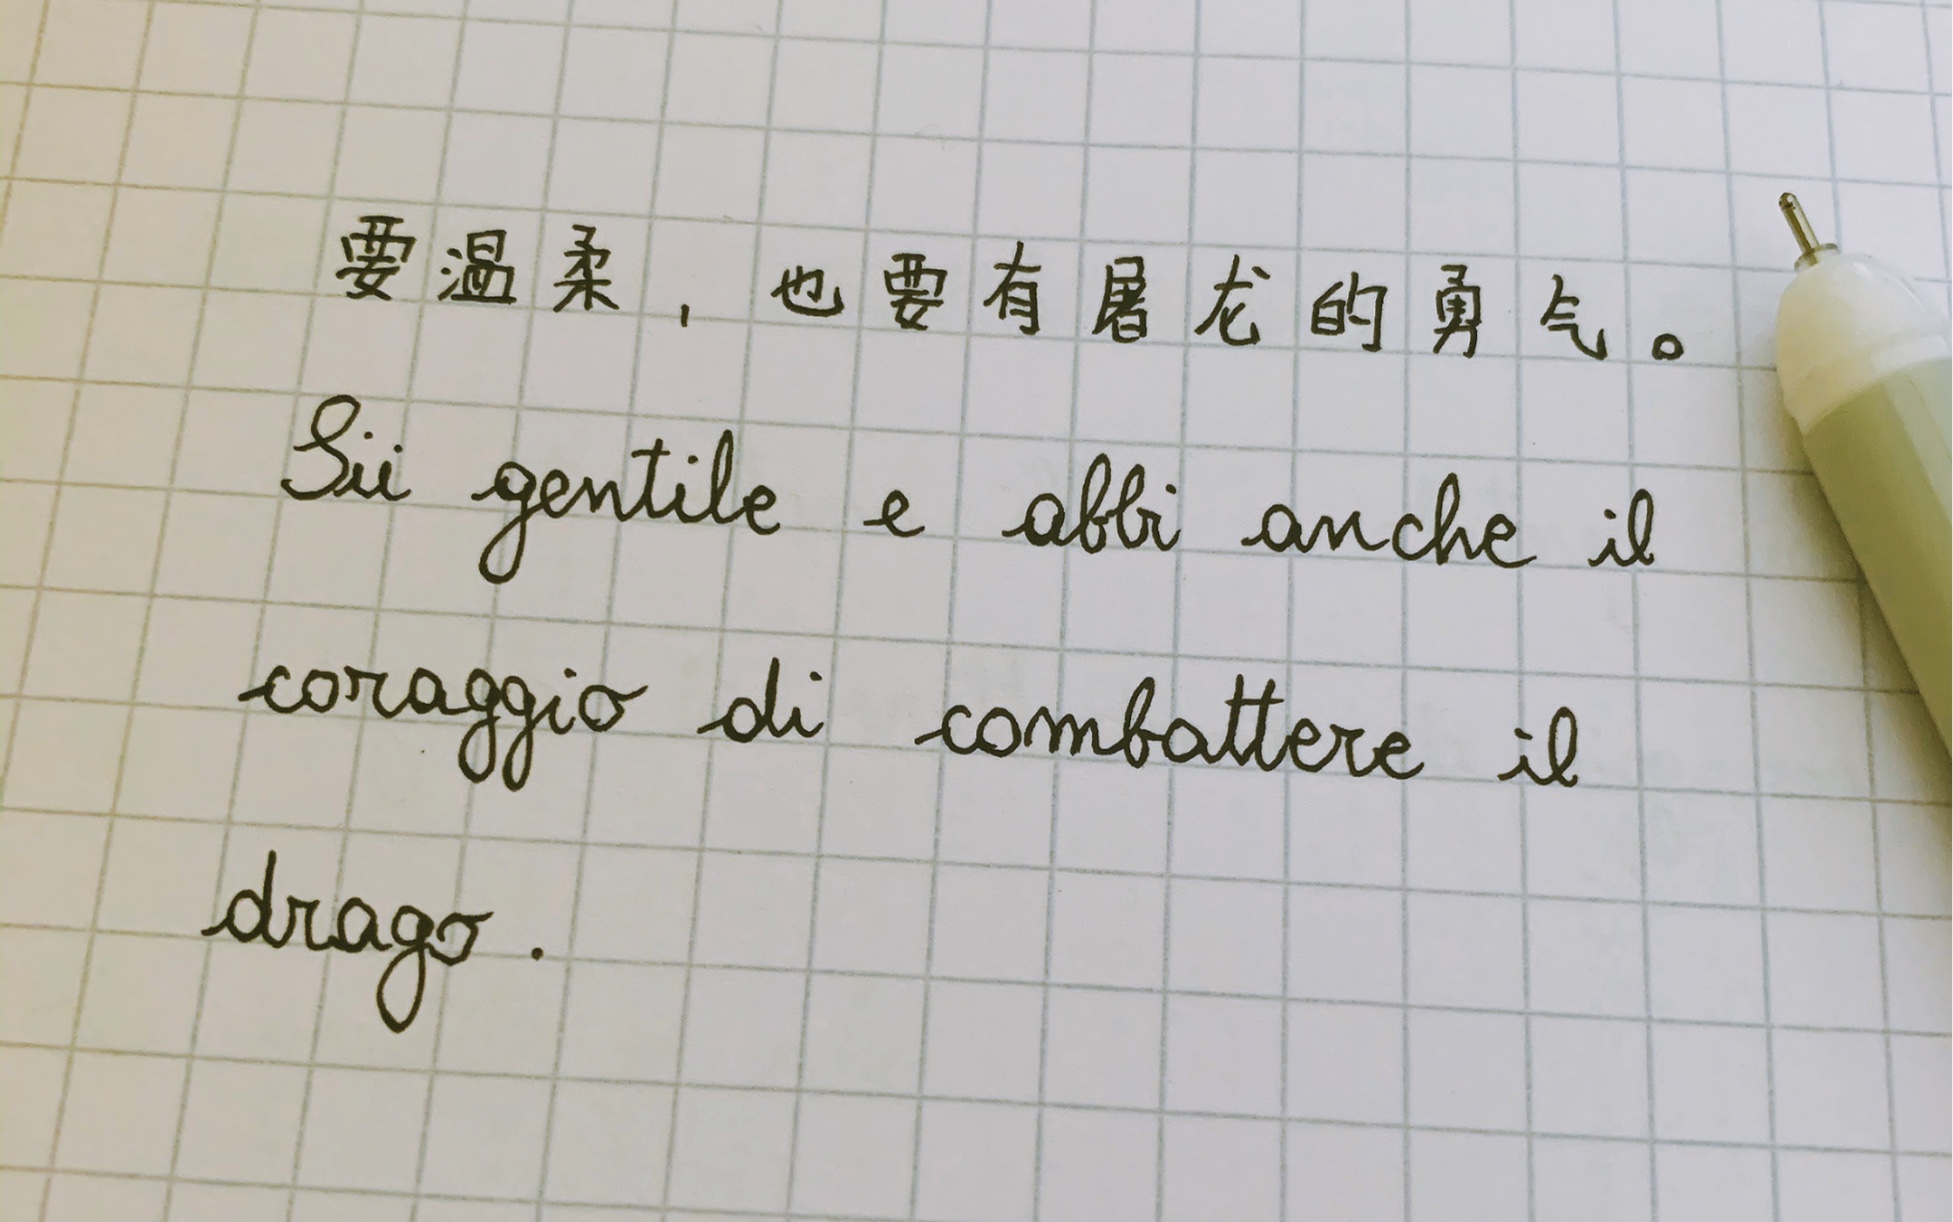 要温柔，也要有屠龙的勇气。
Sii gentile e abbi anche il
coraggio di combattere il
drago.